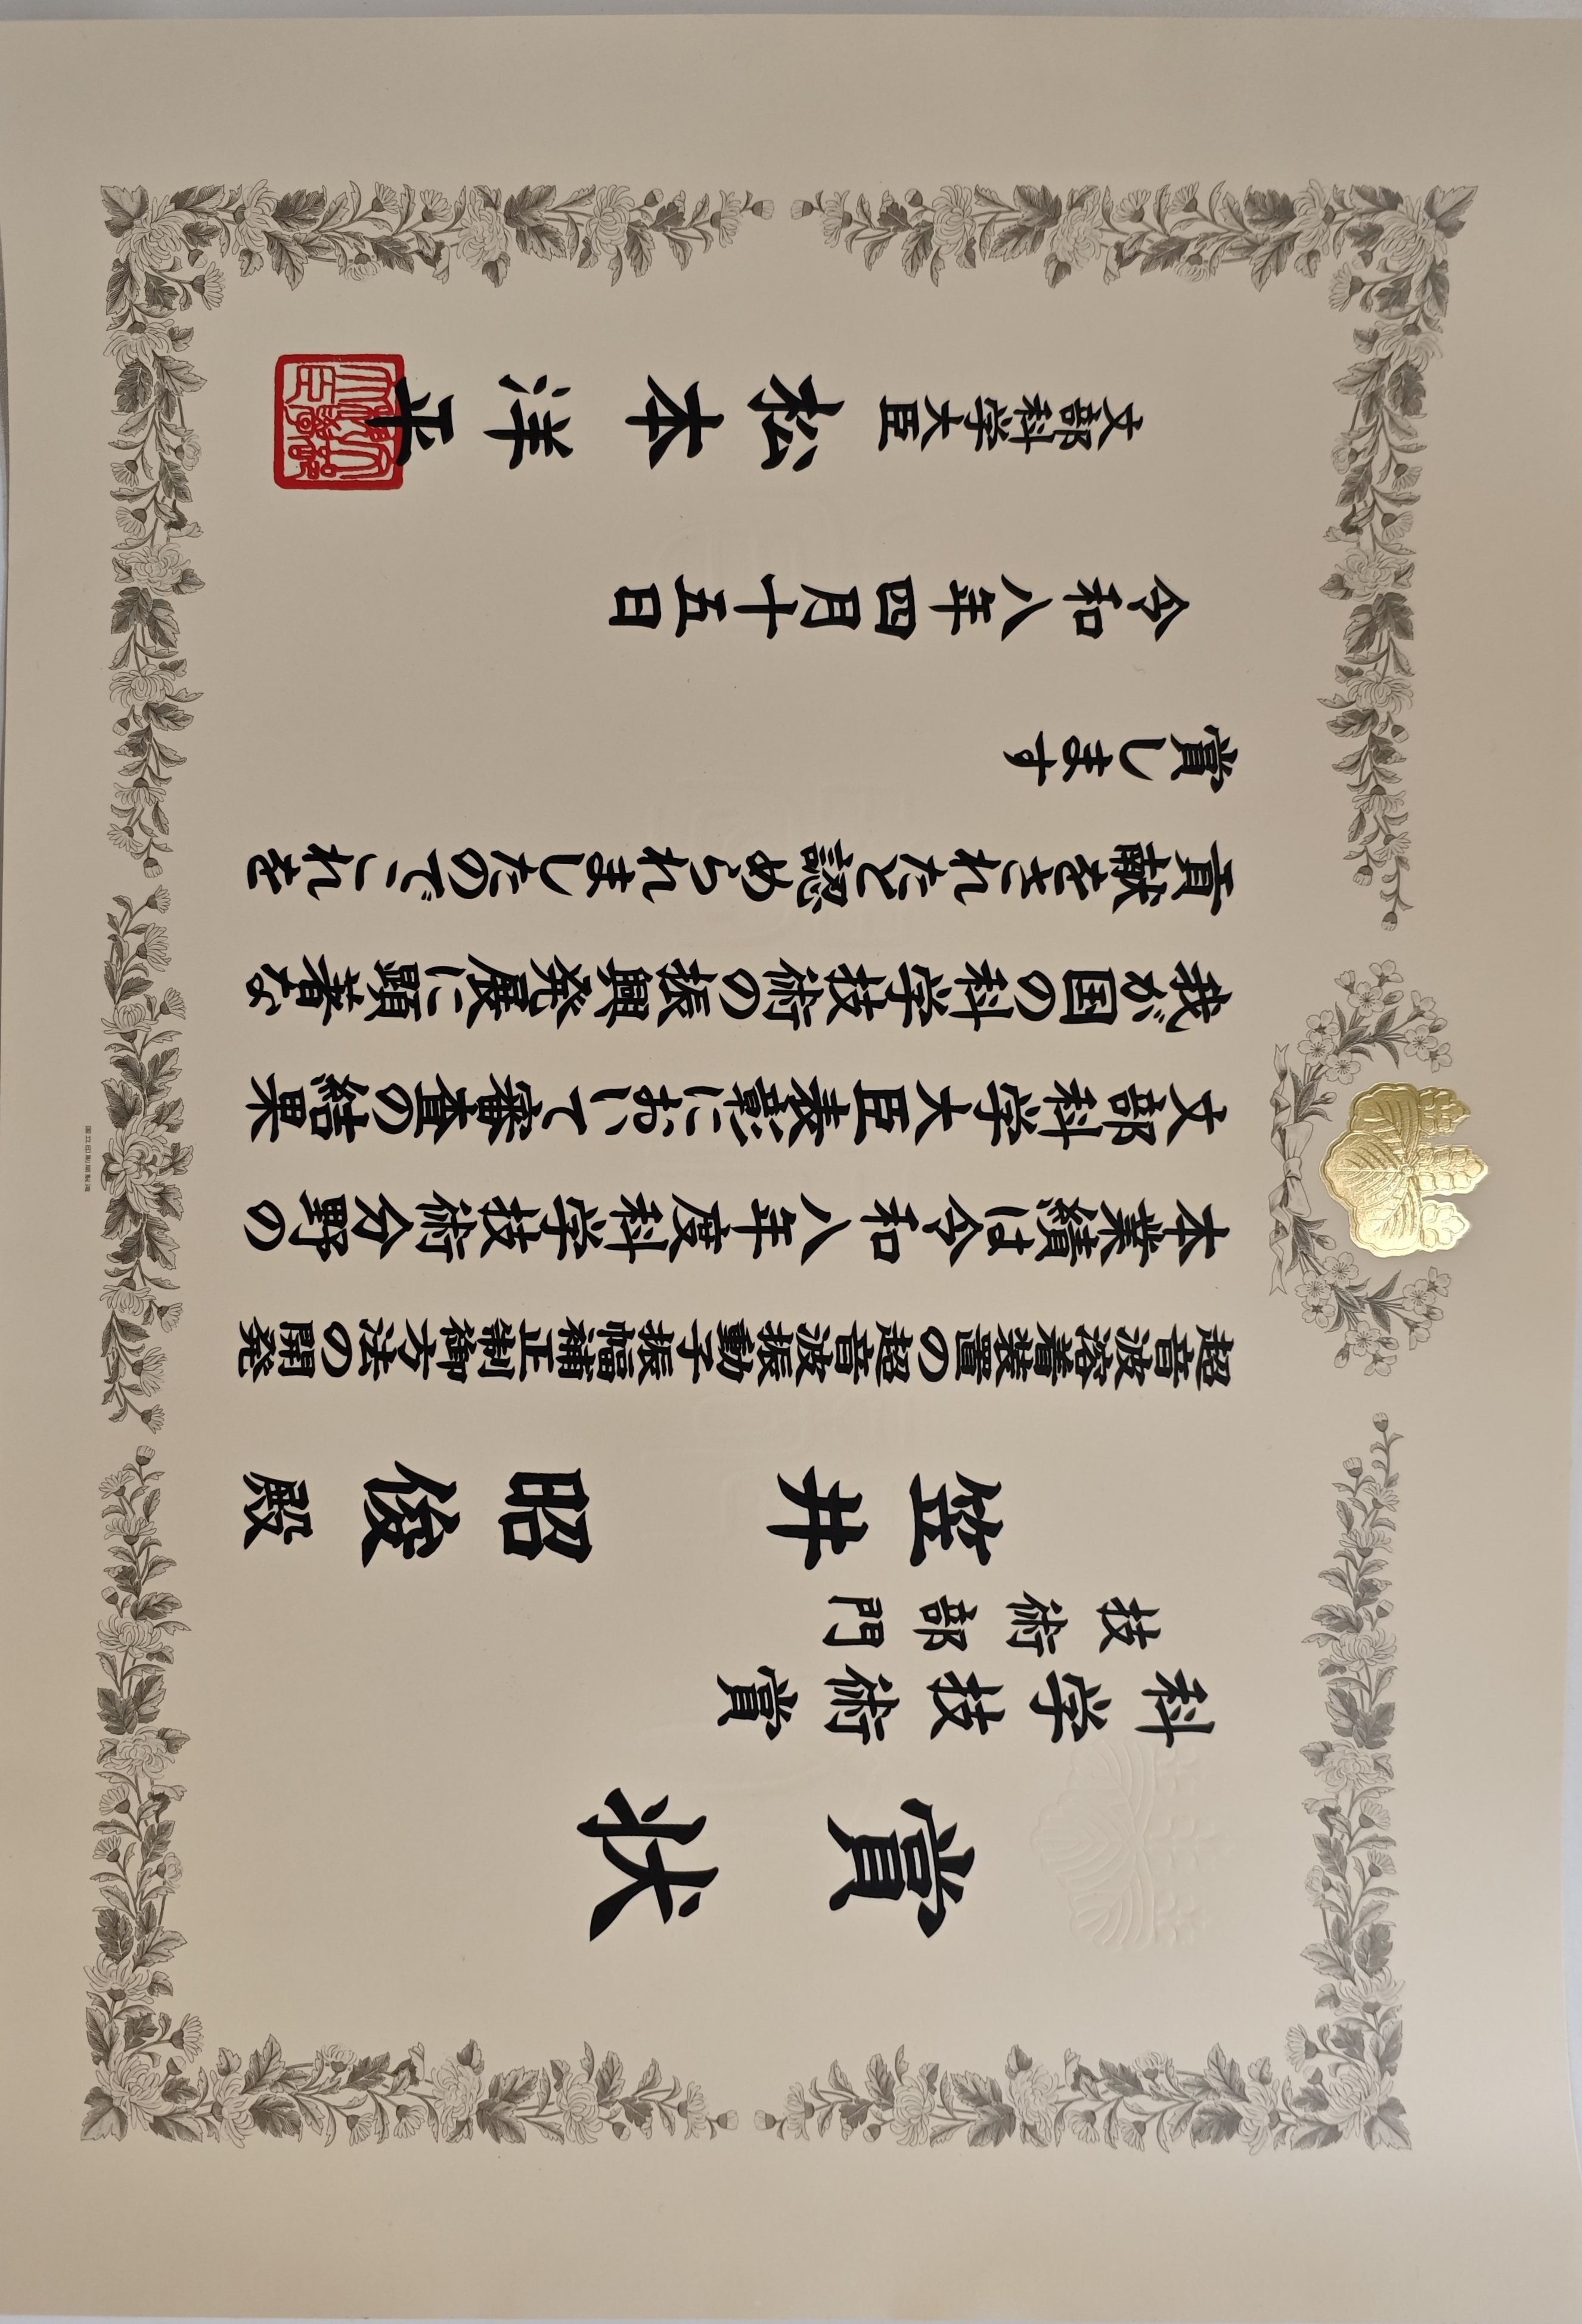 賞状
科学技術賞
技術部門
笠井昭俊殿
超音波溶着装置の超音波振動子振幅補正制御方法の開発
本業績は令和八年度科学技術分野の
文部科学大臣表彰において審査の結果
我が国の科学技術の振興発展に顕著な
貢献をされたと認められましたのでこれを
賞します
令和八年四月十五日
文部科学大臣 松本洋平